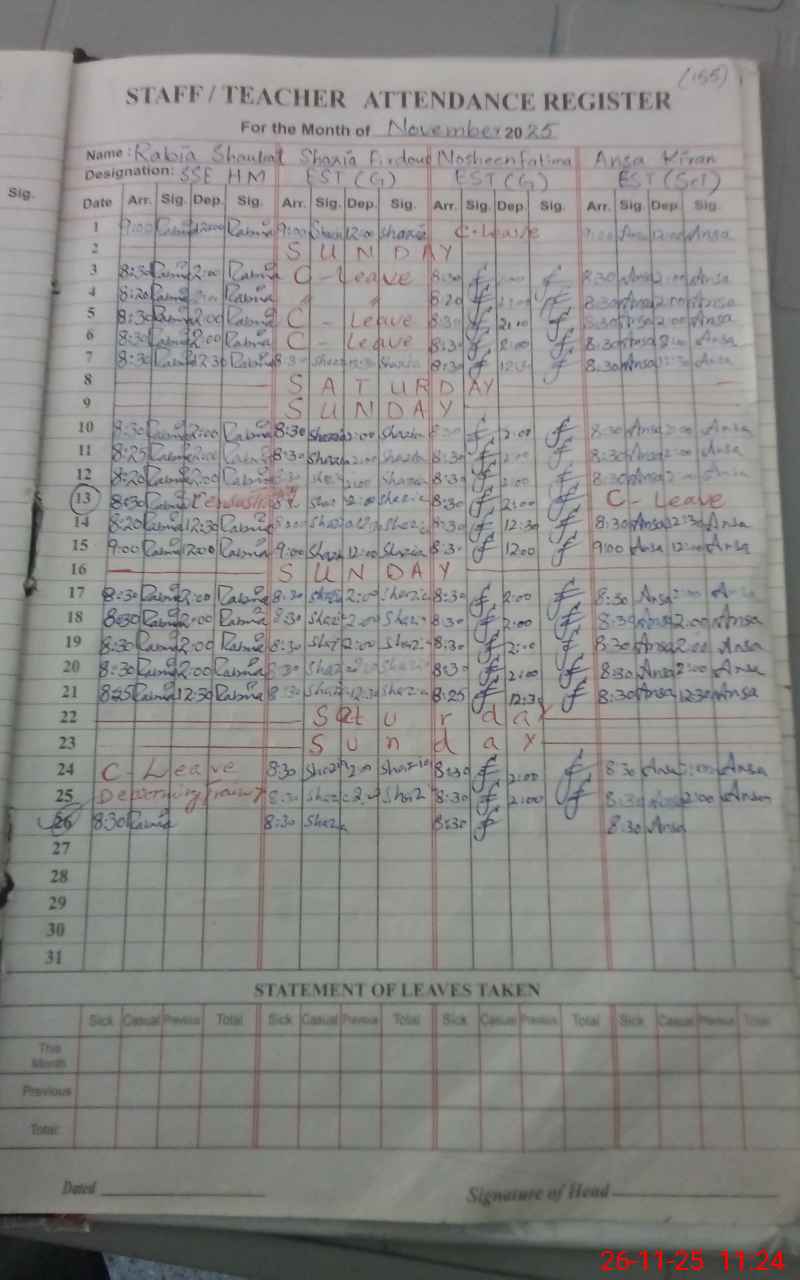 (155)
STAFF / TEACHER ATTENDANCE REGISTER
For the Month of November 2025
Name : Rabia Shaukat Shazia Firdous Nosheen Fatima Ansa Kiran
Designation: SSE HM EST (G) EST (G) EST (Sci)
Sig. Date Arr. Sig. Dep. Sig. Arr. Sig. Dep. Sig. Arr. Sig. Dep. Sig. Arr. Sig. Dep. Sig.
1 9:00 Rabia 12:00 Rabia 9:00 Shazia 12:00 Shazia C-Leave 9:00 Ansa 12:00 Ansa
2 SUNDAY
3 8:30 Rabia 2:00 Rabia C - Leave 8:30 2:00 8:30 Ansa 2:00 Ansa
4 8:20 Rabia 2:00 Rabia " " 8:20 8:30 Ansa 2:00 Ansa
5 8:30 Rabia 2:00 Rabia C - Leave 8:30 2:00 8:30 Ansa 2:00 Ansa
6 8:30 Rabia 2:00 Rabia C - Leave 8:30 2:00 8:30 Ansa 2:00 Ansa
7 8:30 Rabia 12:30 Rabia 8:30 Shaz 12:30 Shazia 8:30 12:30 8:30 Ansa 12:30 Ansa
8 SATURDAY
9 SUNDAY
10 8:30 Rabia 2:00 Rabia 8:30 Shazia 2:00 Shazia 8:30 2:00 8:30 Ansa 2:00 Ansa
11 8:25 Rabia 2:00 Rabia 8:30 Shazia 2:00 Shazia 8:30 2:00 8:30 Ansa 2:00 Ansa
12 8:20 Rabia 2:00 Rabia 8:30 Shaz 2:00 Shazia 8:30 2:00 8:30 Ansa 2:00 Ansa
13 8:30 Rabia Shaz 2:00 Shazia 8:30 2:00 C - Leave
14 8:20 Rabia 12:30 Rabia Shaz Shazia 8:30 12:30 8:30 Ansa 12:30 Ansa
15 9:00 Rabia 12:00 Rabia 9:00 Shaza 12:00 Shazia 8:30 12:00 9:00 Ansa 12:00 Ansa
16 SUNDAY
17 8:30 Rabia 2:00 Rabia 8:30 Shazi 2:00 Shazia 8:30 2:00 8:30 Ansa 2:00 Ansa
18 8:30 Rabia 2:00 Rabia 8:30 Shazi 2:00 Shazi 8:30 2:00 8:30 Ansa 2:00 Ansa
19 8:30 Rabia 2:00 Rabia 8:30 Shaz 2:00 Shazi 8:30 2:00 8:30 Ansa 2:00 Ansa
20 8:30 Rabia 2:00 Rabia 8:30 Shaz 2:00 Shazia 8:30 2:00 8:30 Ansa 2:00 Ansa
21 8:25 Rabia 12:30 Rabia 8:30 Shaz 12:30 Shazia 8:25 12:30 8:30 Ansa 12:30 Ansa
22 Saturday
23 Sunday
24 C - Leave 8:30 Shazi 2:00 Shazia 8:30 2:00 8:30 Ansa 2:00 Ansa
25 8:30 Shaz 2:00 Shaz 8:30 2:00 8:30 Ansa 2:00 Ansa
26 8:30 Rabia 8:30 Shaza 8:30 8:30 Ansa
27
28
29
30
31
STATEMENT OF LEAVES TAKEN
Sick Casual Previous Total Sick Casual Previous Total Sick Casual Previous Total Sick Casual Previous Total
This Month
Previous
Total:
Dated Signature of Head
26-11-25 11:24